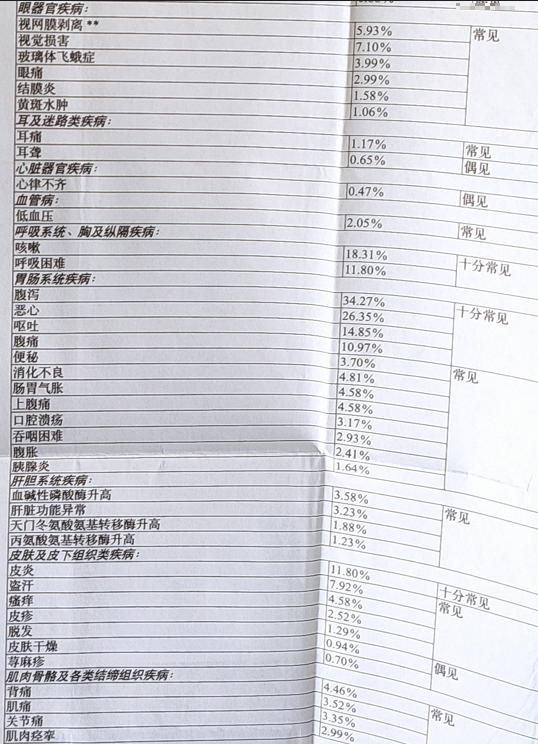 眼器官疾病:
视网膜剥离** 5.93% 常见
视觉损害 7.10%
玻璃体飞蛾症 3.99%
眼痛 2.99%
结膜炎 1.58%
黄斑水肿 1.06%
耳及迷路类疾病:
耳痛 1.17% 常见
耳聋 0.65% 偶见
心脏器官疾病:
心律不齐 0.47% 偶见
血管病:
低血压 2.05% 常见
呼吸系统、胸及纵隔疾病:
咳嗽 18.31% 十分常见
呼吸困难 11.80%
胃肠系统疾病:
腹泻 34.27% 十分常见
恶心 26.35%
呕吐 14.85%
腹痛 10.97%
便秘 3.70% 常见
消化不良 4.81%
肠胃气胀 4.58%
上腹痛 4.58%
口腔溃疡 3.17%
吞咽困难 2.93%
腹胀 2.41%
胰腺炎 1.64%
肝胆系统疾病:
血碱性磷酸酶升高 3.58% 常见
肝脏功能异常 3.23%
天门冬氨酸氨基转移酶升高 1.88%
丙氨酸氨基转移酶升高 1.23%
皮肤及皮下组织类疾病:
皮炎 11.80% 十分常见
盗汗 7.92% 常见
瘙痒 4.58%
皮疹 2.52%
脱发 1.29%
皮肤干燥 0.94% 偶见
荨麻疹 0.70%
肌肉骨骼及各类结缔组织疾病:
背痛 4.46% 常见
肌痛 3.52%
关节痛 3.35%
肌肉痉挛 2.99%